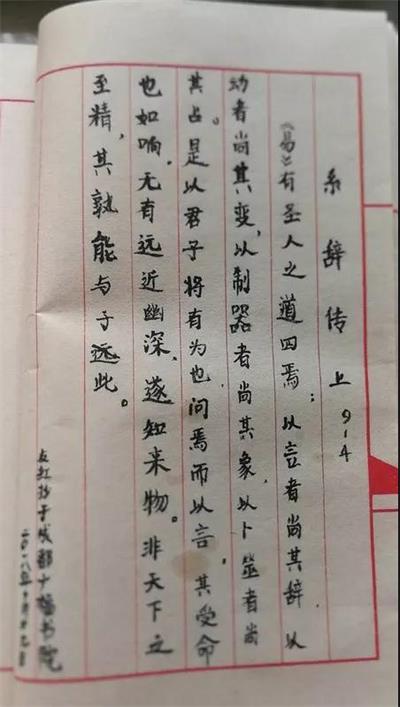 系辞传上9-4
《易》有圣人之道四焉：以言者尚其辞，以
动者尚其变，以制器者尚其象，以卜筮者尚
其占。是以君子将有为也，问焉而以言，其受命
也如响，无有远近幽深，遂知来物。非天下之
至精，其孰能与于此。
抄于成都十幅书院
二〇一八年十月十九日